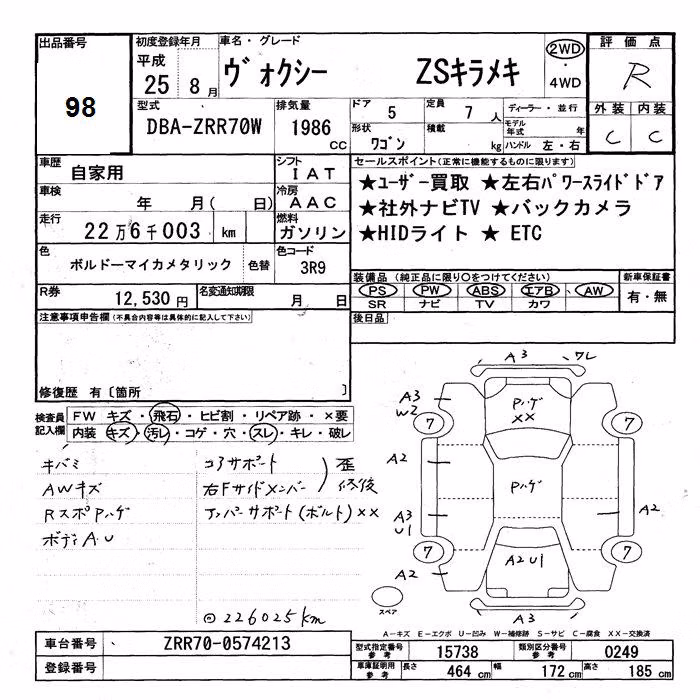 出品番号
98
初度登録年月
平成
25 8 月
車名・グレード
ヴォクシー ZSキラメキ
2WD
・
4WD
評価点
R
型式
DBA-ZRR70W
排気量
1986
cc
ドア
5
定員
7
人
ディーラー・並行
モデル
年式 年
形状
ワゴン
積載
kg
ハンドル 左・右
外装 内装
C C
車歴
自家用
シフト
IAT
車検
年 月( 日)
冷房
AAC
走行
22万6千003 km
燃料
ガソリン
色
ボルドーマイカメタリック
色替
色コード
3R9
R券
12,530 円
名変通知期限
月 日
セールスポイント(正常に機能するものに限ります)
★ユーザー買取 ★左右パワースライドドア
★社外ナビTV ★バックカメラ
★HIDライト ★ ETC
装備品 (純正品に限り○をつけてください)
PS PW ABS エアB AW
SR ナビ TV カワ
新車保証書
有・無
後日品
注意事項申告欄(不具合内容等は具体的に記入して下さい)
修復歴 有〔箇所 〕
検査員
記入欄
FW キズ・飛石・ヒビ割・リペア跡・×要
内装 キズ・汚レ・コゲ・穴・スレ・キレ・破レ
キバミ
AWキズ
RスポPハゲ
ボディA,U
コアサポート
右Fサイドメンバー
歪
修復
アッパーサポート(ボルト)××
◎226025km
A3 ワレ
A3
W2
Pハゲ
××
7 7
A2
Pハゲ
A3
U1
A2
7 7
A2
A2U1
スペア
A3
A-キズ E-エクボ U-凹み W-補修跡 S-サビ C-腐食 XX-交換済
車台番号
ZRR70-0574213
登録番号
型式指定番号
参考
15738
類別区分番号
参考
0249
車庫証明用
参考
長さ
464 cm
幅
172 cm
高さ
185 cm